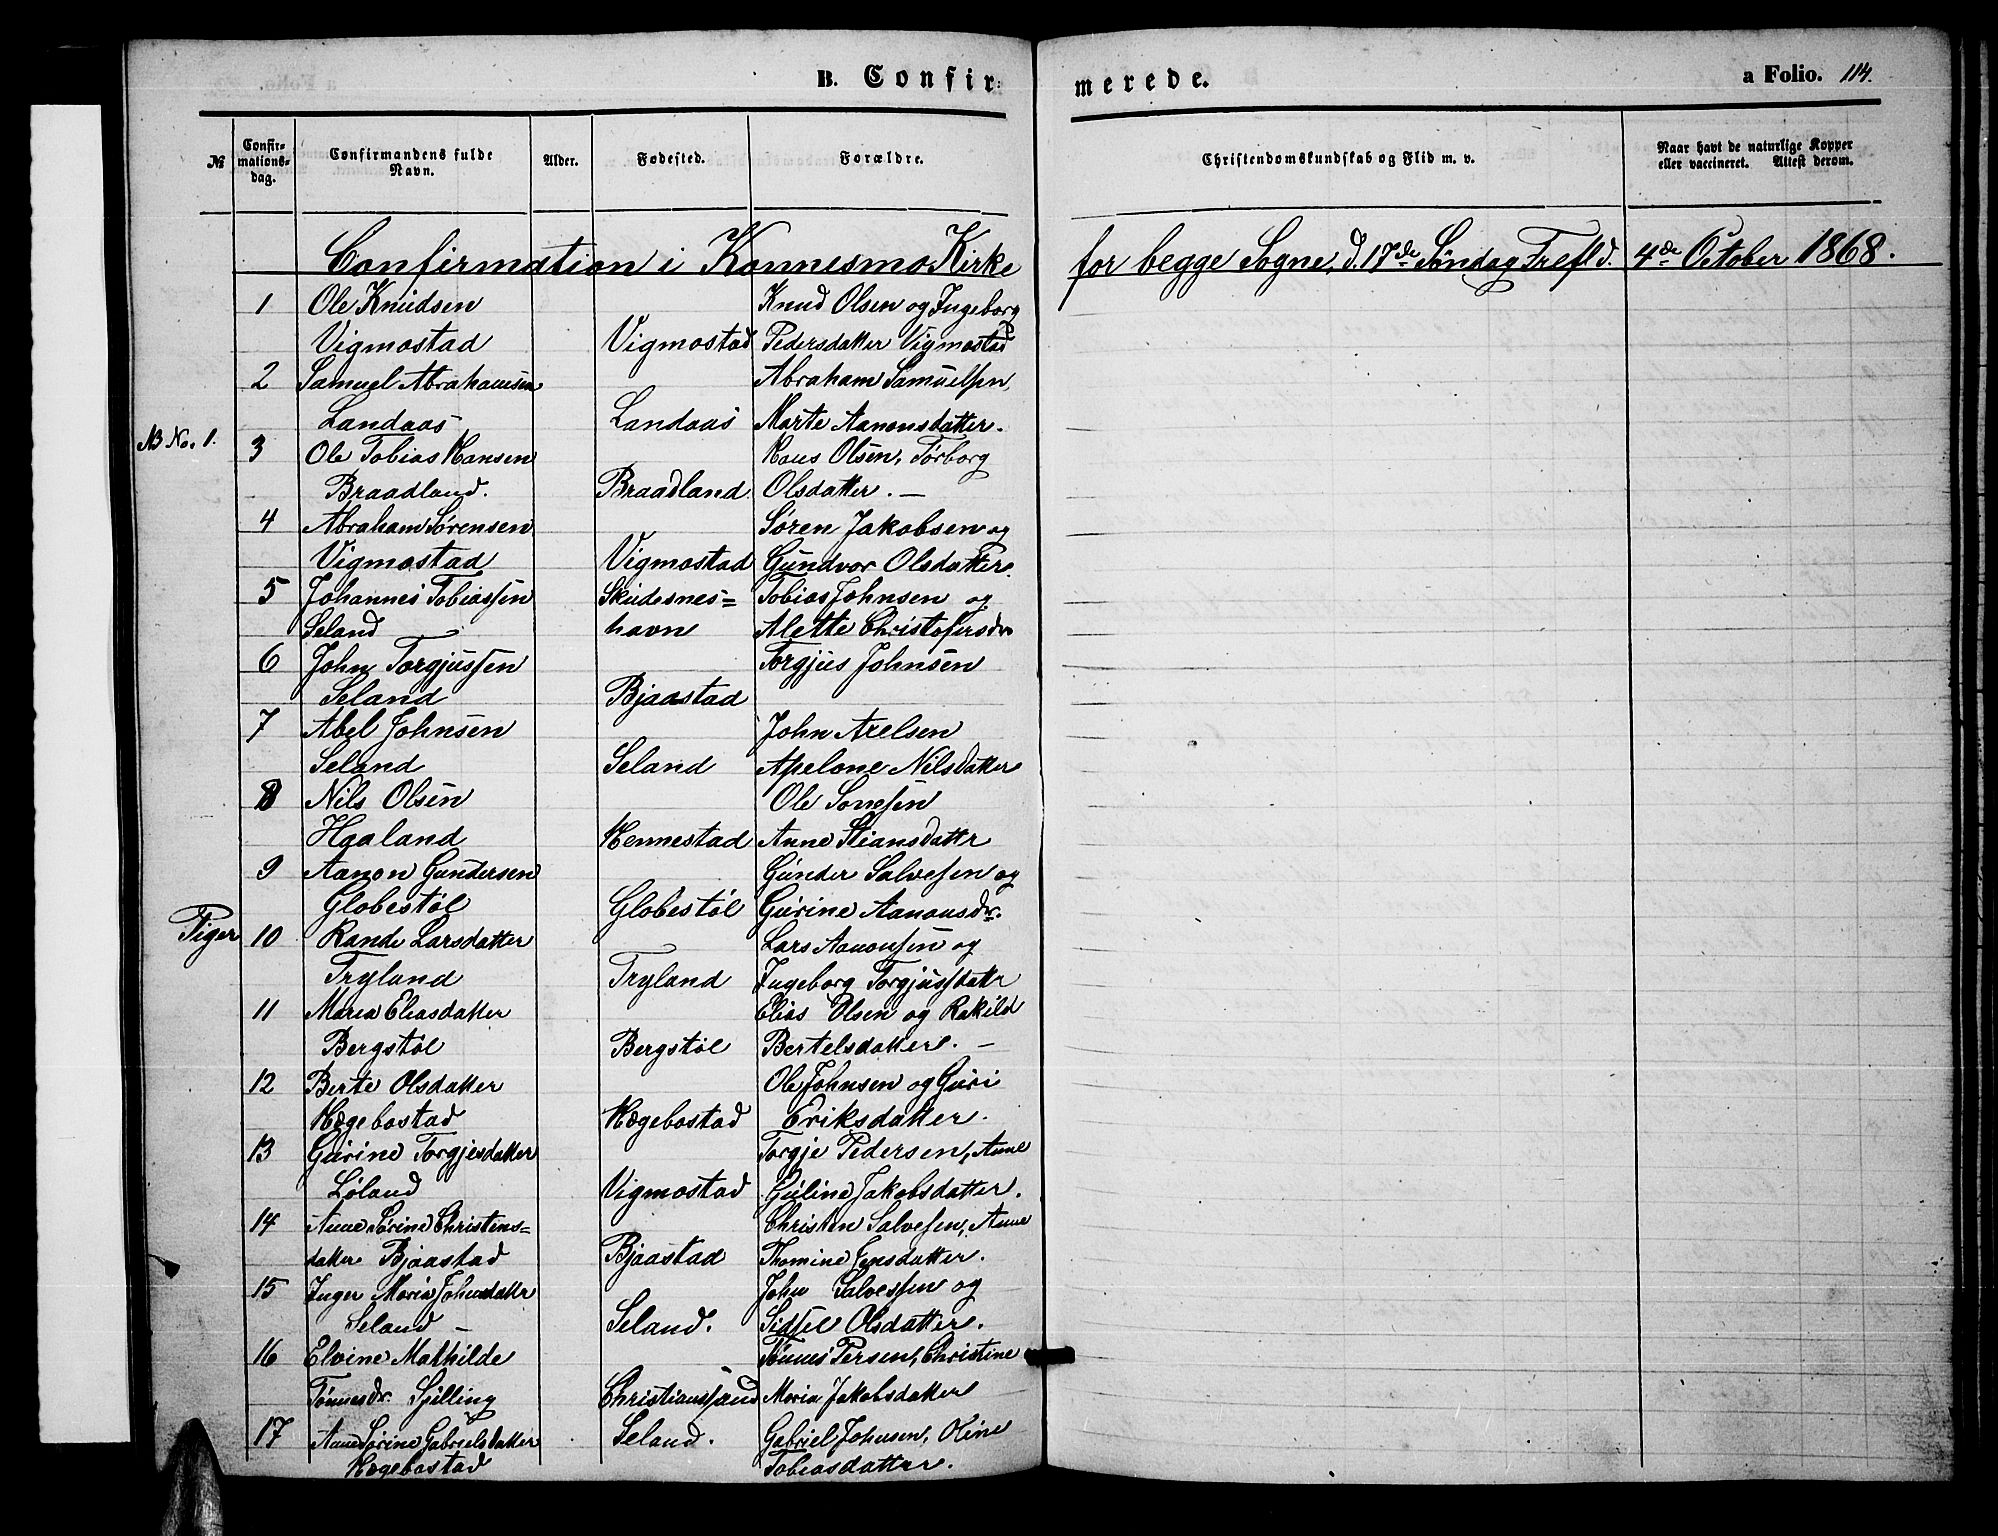 B. Confirmerede.
a Folio. 114.
№ Confirmationsdag. Confirmandens fulde Navn. Alder. Fødested. Forældre. Christendomskundskab og Flid m. v. Naar havt de naturlige Kopper eller vaccineret. Attest derom.
Confirmation i Konnesmo Kirke for begge Sogne, d. 17de Søndag Tref d. 4de October 1868.
1 Ole Knudsen Knud Olsen og Ingeborg
Vigmostad Vigmostad Pedersdatter Vigmostad
2 Samuel Abrahamsen Abraham Samuelsen,
Landaas Landaas Marte Aanonsdatter.
NB No. 1. 3 Ole Tobias Hansen Hans Olsen, Torborg
Braadland. Braadland Olsdatter. —
4 Abraham Sørensen Søren Jakobsen og
Vigmostad Vigmostad Gundvor Olsdatter.
5 Johannes Tobiassen Skudesnes= Tobias Johnsen og
Seland havn Alette Christofersdr
6 John Torgjussen Torgjus Johnsen
Seland Bjaastad
7 Abel Johnsen John Axelsen
Seland Seland Apelone Nilsdatter
8 Nils Olsen Ole
Haaland Hennestad Anne Stiansdattr
9 Aanon Gundersen Gunder Salvesen og
Globestøl Globestøl Gurine Aanonsdr.
Piger 10 Rande Larsdatter Lars Aanonsen og
Tryland Tryland Ingeborg Torgjusdattr
11 Maria Eliasdatter Elias Olsen og Rakild
Bergstøl Bergstøl Bertelsdatter. —
12 Berte Olsdatter Ole Johnsen og Guri
Hægebostad Hægebostad Eriksdatter.
13 Gurine Torgjesdatter Torgje Pedersen, Anne
Løland Vigmostad Guline Jakobsdatter.
14 Anne Sørine Christens= Christen Salvesen, Anne
datter Bjaastad Bjaastad Thomine Jensdatter.
15 Inger Maria Johnsdattr John Salvessen og
Seland — Seland. Sidsel Olsdatter.
16 Elvine Mathilde Tønnes Persen, Christine
Tønnesdr. Spilling Christianssand Maria Jakobsdatter
17 Anne Sørine Gabrielsdatter Seland. Gabriel Johnsen, Oline
Hægebostad Tobiasdatter.